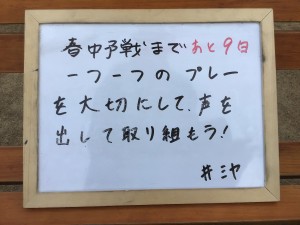 春中予戦まであと9日
一つ一つのプレー
を大切にして、声を
出して取り組もう!
井ミヤ